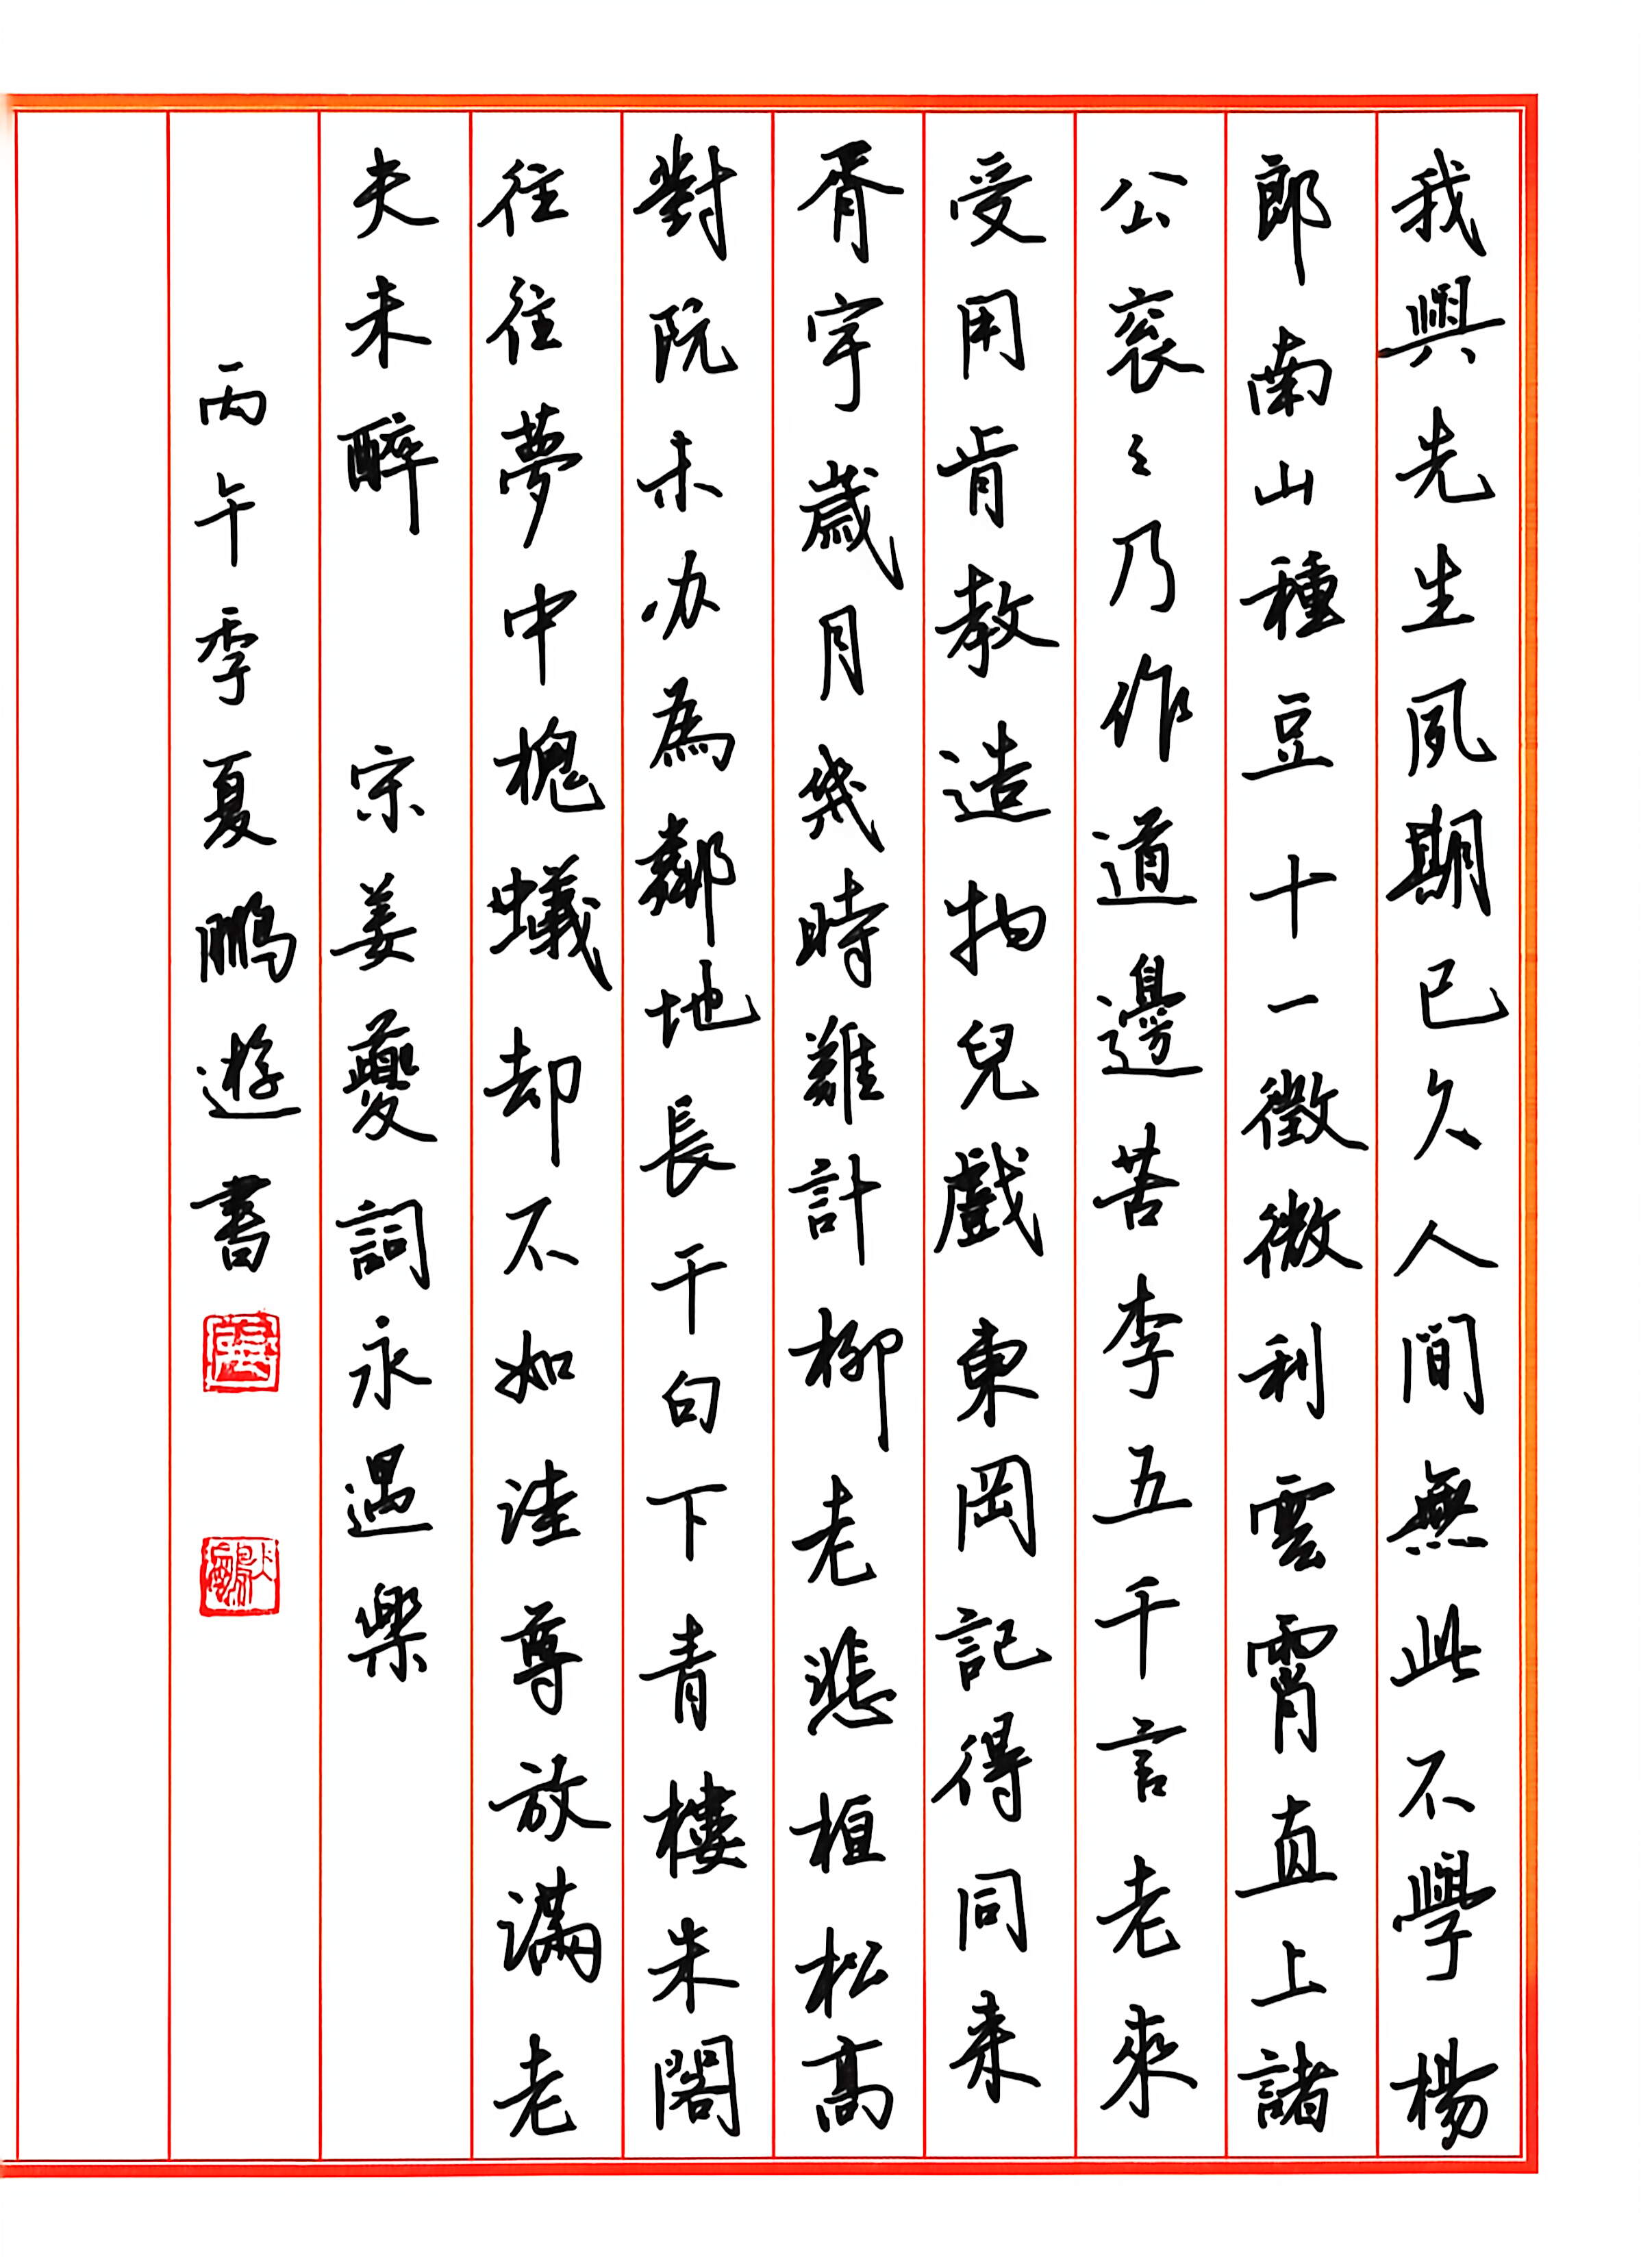 我與先生夙期已久人間無此不學楊
郎南山種豆十一徵微利雲霄直上諸
公袞〻乃作道邊苦李五千言老來
受用肯教造物兒戲東岡記得同來
胥宇歲月幾時難計柳老悲桓松高
對阮未办為鄰地長干白下青樓朱閣
往往夢中槐蟻却不如洼尊放滿老
夫未醉 宗姜夔詞永遇樂
丙午季夏鵬遊書